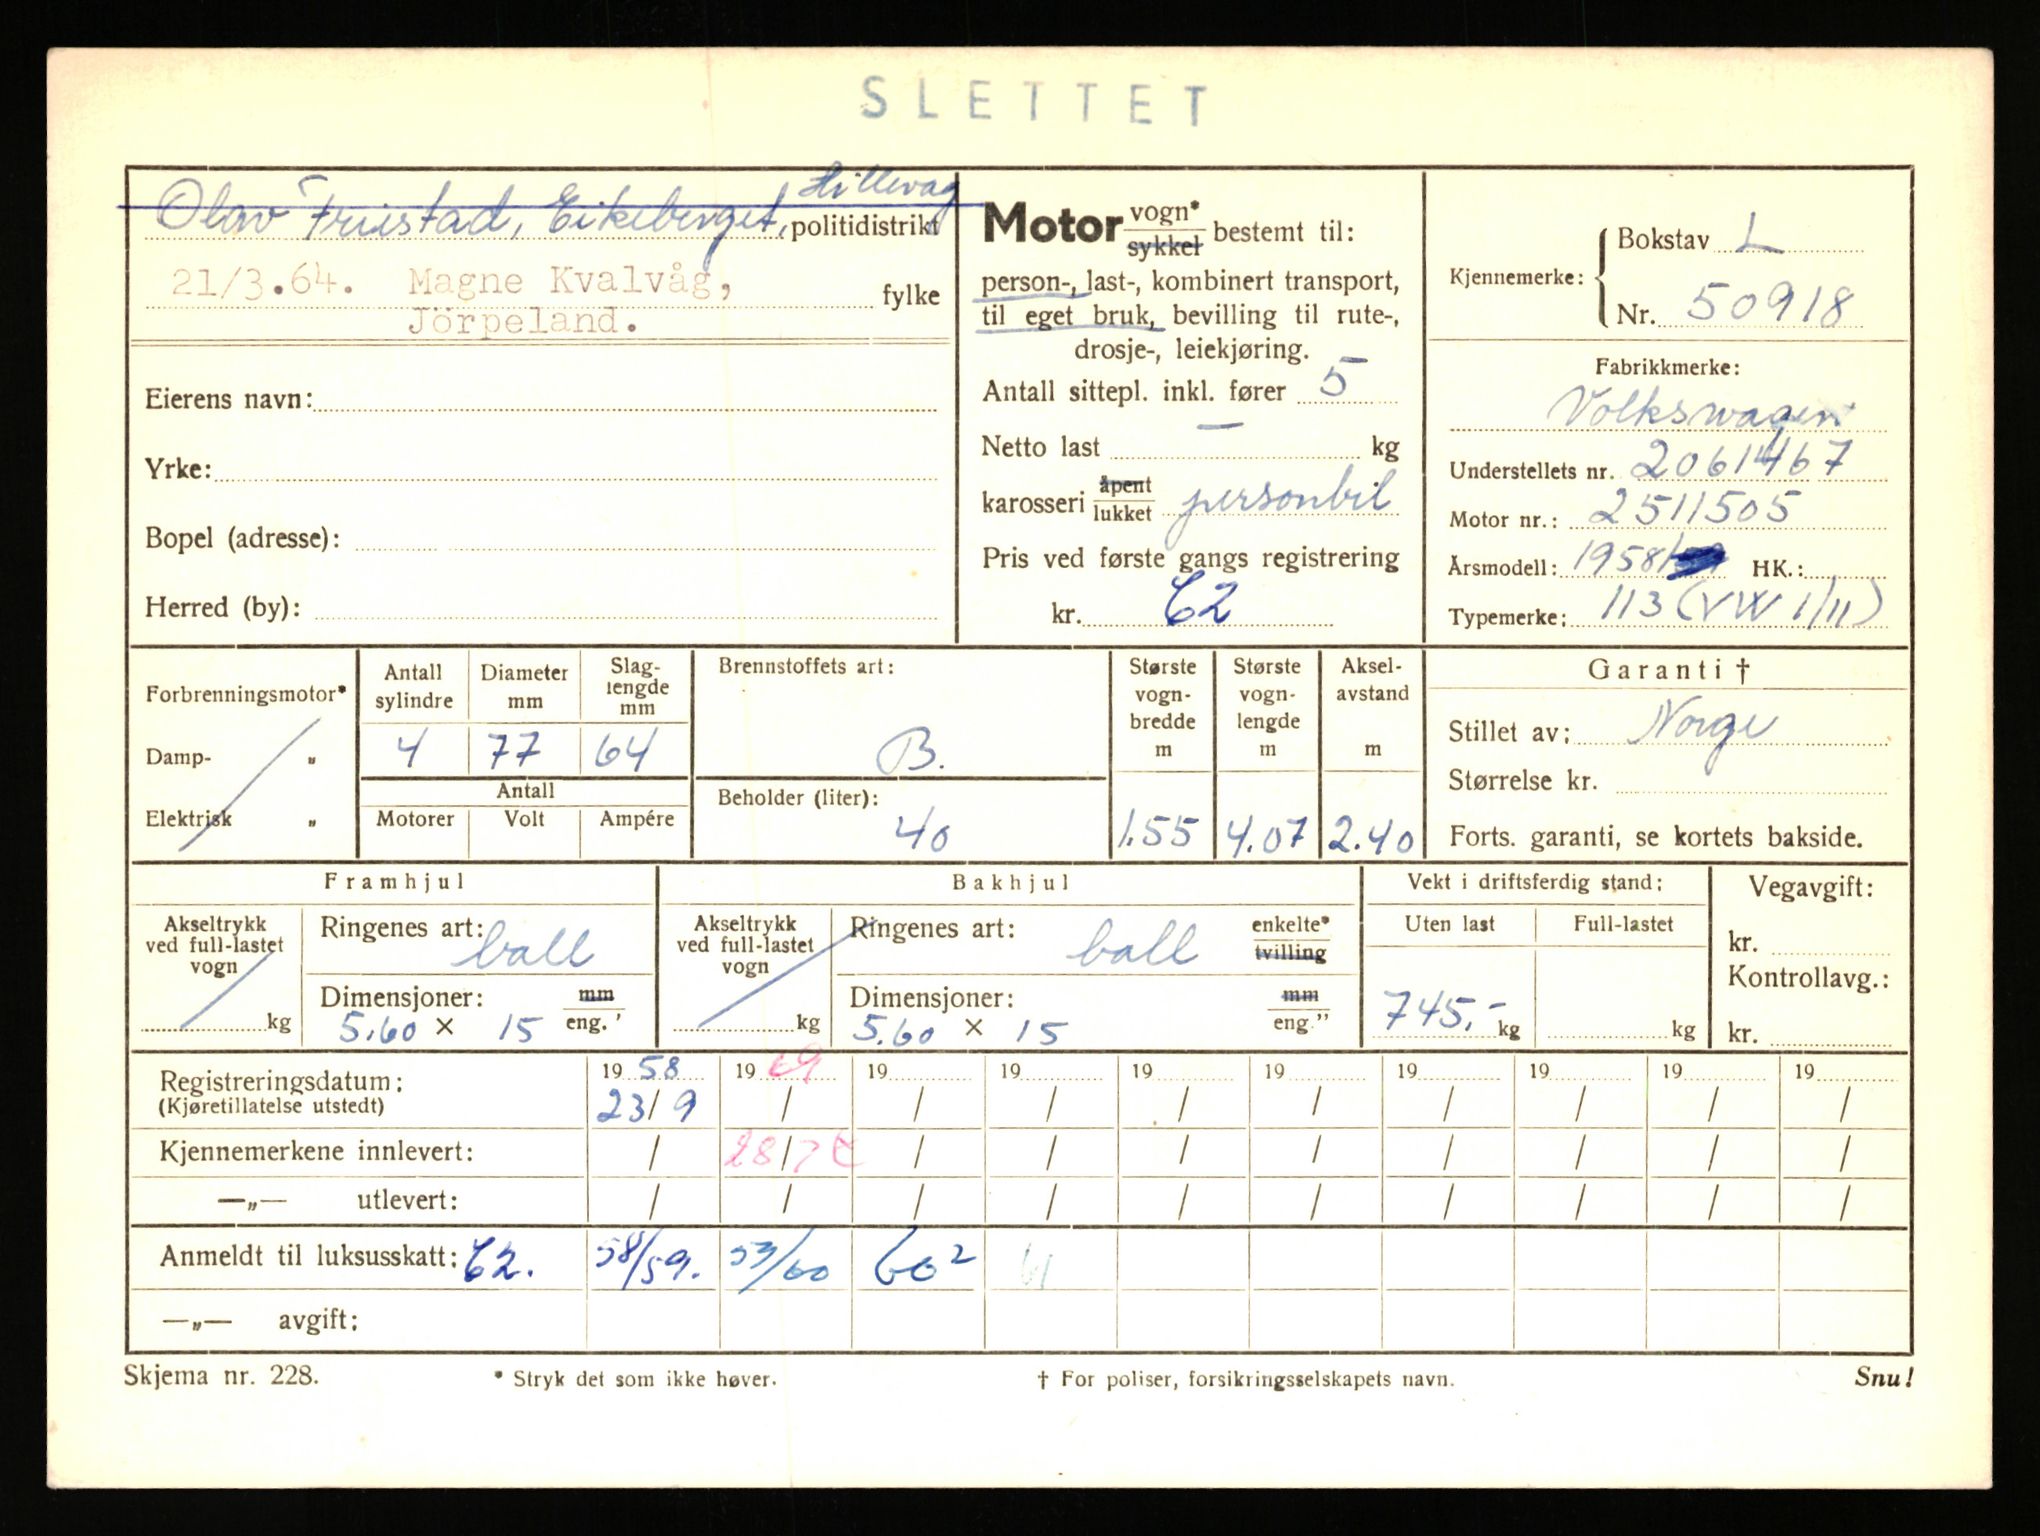 SLETTET
Olav Fruestad, Eikeberget, Hillevåg
politidistrikt
21/3.64. Magne Kvalvåg,
fylke
Jörpeland.
Eierens navn:
Yrke:
Bopel (adresse):
Herred (by):
Motor vogn* sykkel bestemt til:
person-, last-, kombinert transport,
til eget bruk, bevilling til rute-,
drosje-, leiekjøring.
Antall sittepl. inkl. fører 5
Netto last — kg
karosseri åpent lukket personbil
Pris ved første gangs registrering
kr. C2
Kjennemerke: Bokstav L
Nr. 50918
Fabrikkmerke:
Volkswagen
Understellets nr. 2061467
Motor nr.: 2511505
Årsmodell: 1958 HK.:
Typemerke: 113 (VW 1/11)
Forbrenningsmotor*
Damp- „
Elektrisk „
Antall sylindre
Diameter mm
Slag-lengde mm
4 77 64
Antall
Motorer Volt Ampére
Brennstoffets art:
B.
Beholder (liter):
40
Største vogn-bredde m
1.55
Største vogn-lengde m
4.07
Aksel-avstand m
2.40
Garanti †
Stillet av: Norge
Størrelse kr.
Forts. garanti, se kortets bakside.
Framhjul
Akseltrykk
ved full-lastet
vogn
kg
Ringenes art: ball
Dimensjoner: mm
5.60 × 15 eng.'
Bakhjul
Akseltrykk
ved full-lastet
vogn
kg
Ringenes art: ball enkelte* tvilling
Dimensjoner: mm
5.60 × 15 eng."
Vekt i driftsferdig stand:
Uten last Full-lastet
745,- kg kg
Vegavgift:
kr.
Kontrollavg.:
kr.
Registreringsdatum: 1958 1969 19 19 19 19 19 19 19 19
(Kjøretillatelse utstedt) 23/9 / / / / / / / / /
Kjennemerkene innlevert: / 28/7 / / / / / / / /
—„— utlevert: / / / / / / / / / /
Anmeldt til luksusskatt: C2. 58/59. 53/60 60² 61
—„— avgift:
Skjema nr. 228.
* Stryk det som ikke høver.
† For poliser, forsikringsselskapets navn.
Snu!